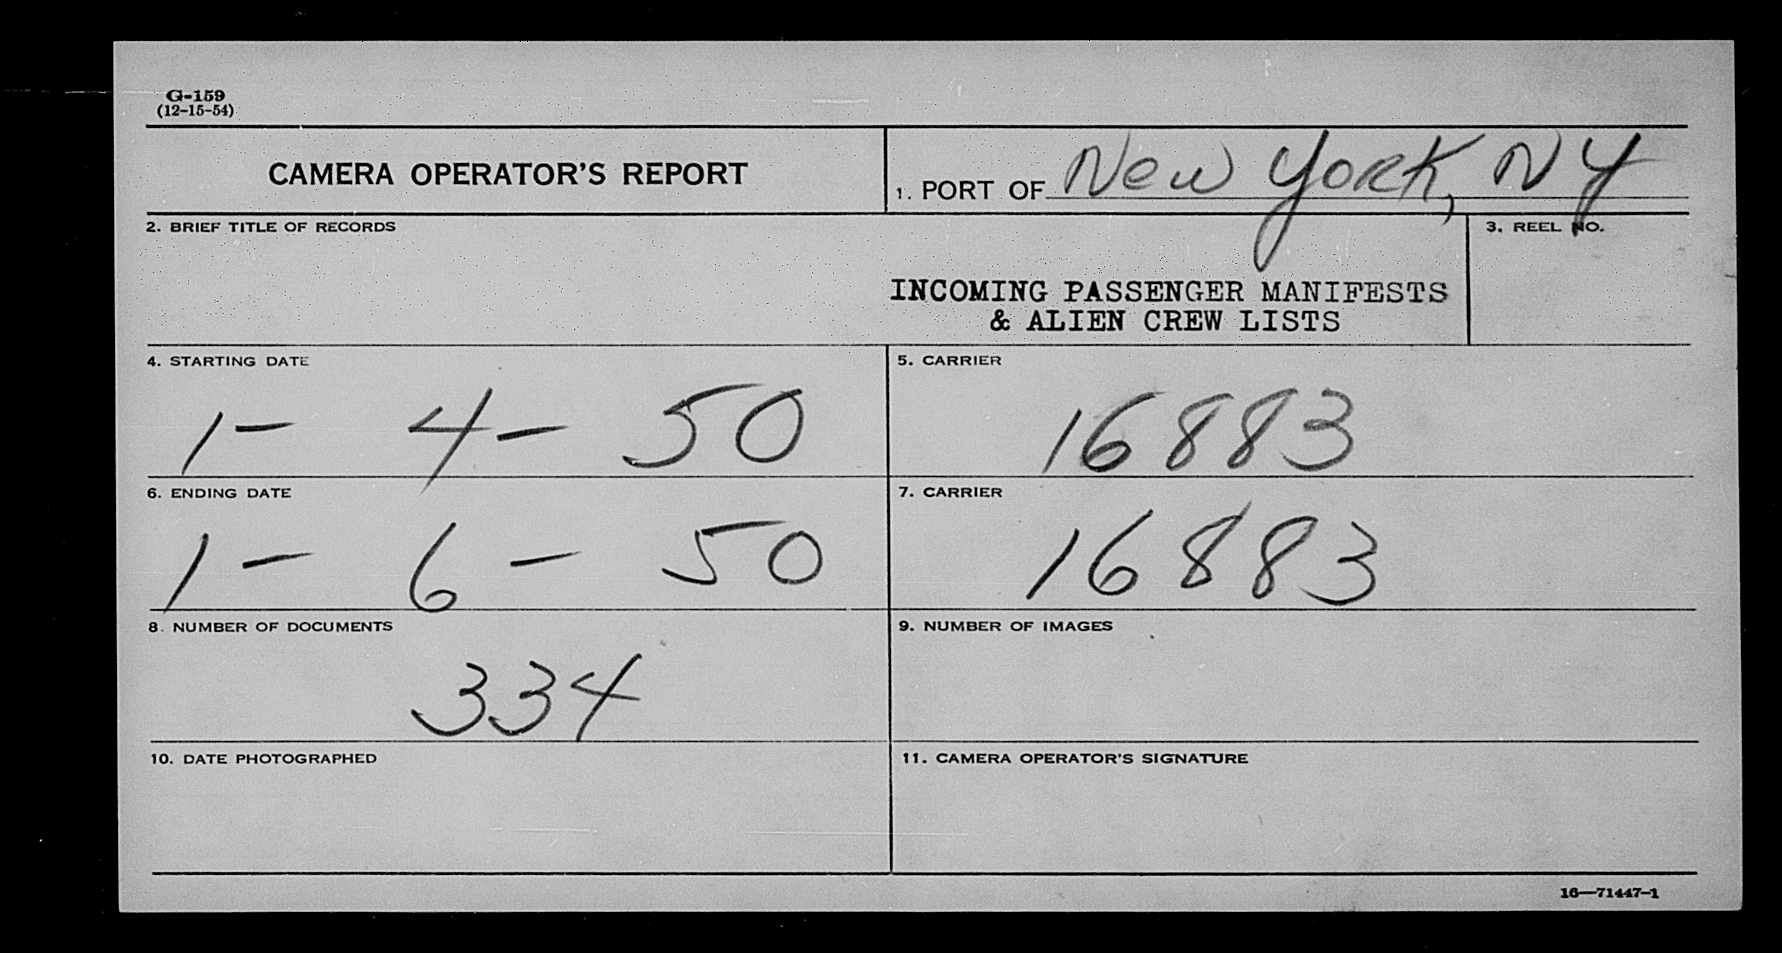 G-159
(12-15-54)
CAMERA OPERATOR'S REPORT
1. PORT OF New York, NY
2. BRIEF TITLE OF RECORDS
3. REEL NO.
INCOMING PASSENGER MANIFESTS
& ALIEN CREW LISTS
4. STARTING DATE
1- 4- 50
5. CARRIER
16883
6. ENDING DATE
1- 6- 50
7. CARRIER
16883
8. NUMBER OF DOCUMENTS
334
9. NUMBER OF IMAGES
10. DATE PHOTOGRAPHED
11. CAMERA OPERATOR'S SIGNATURE
16—71447-1